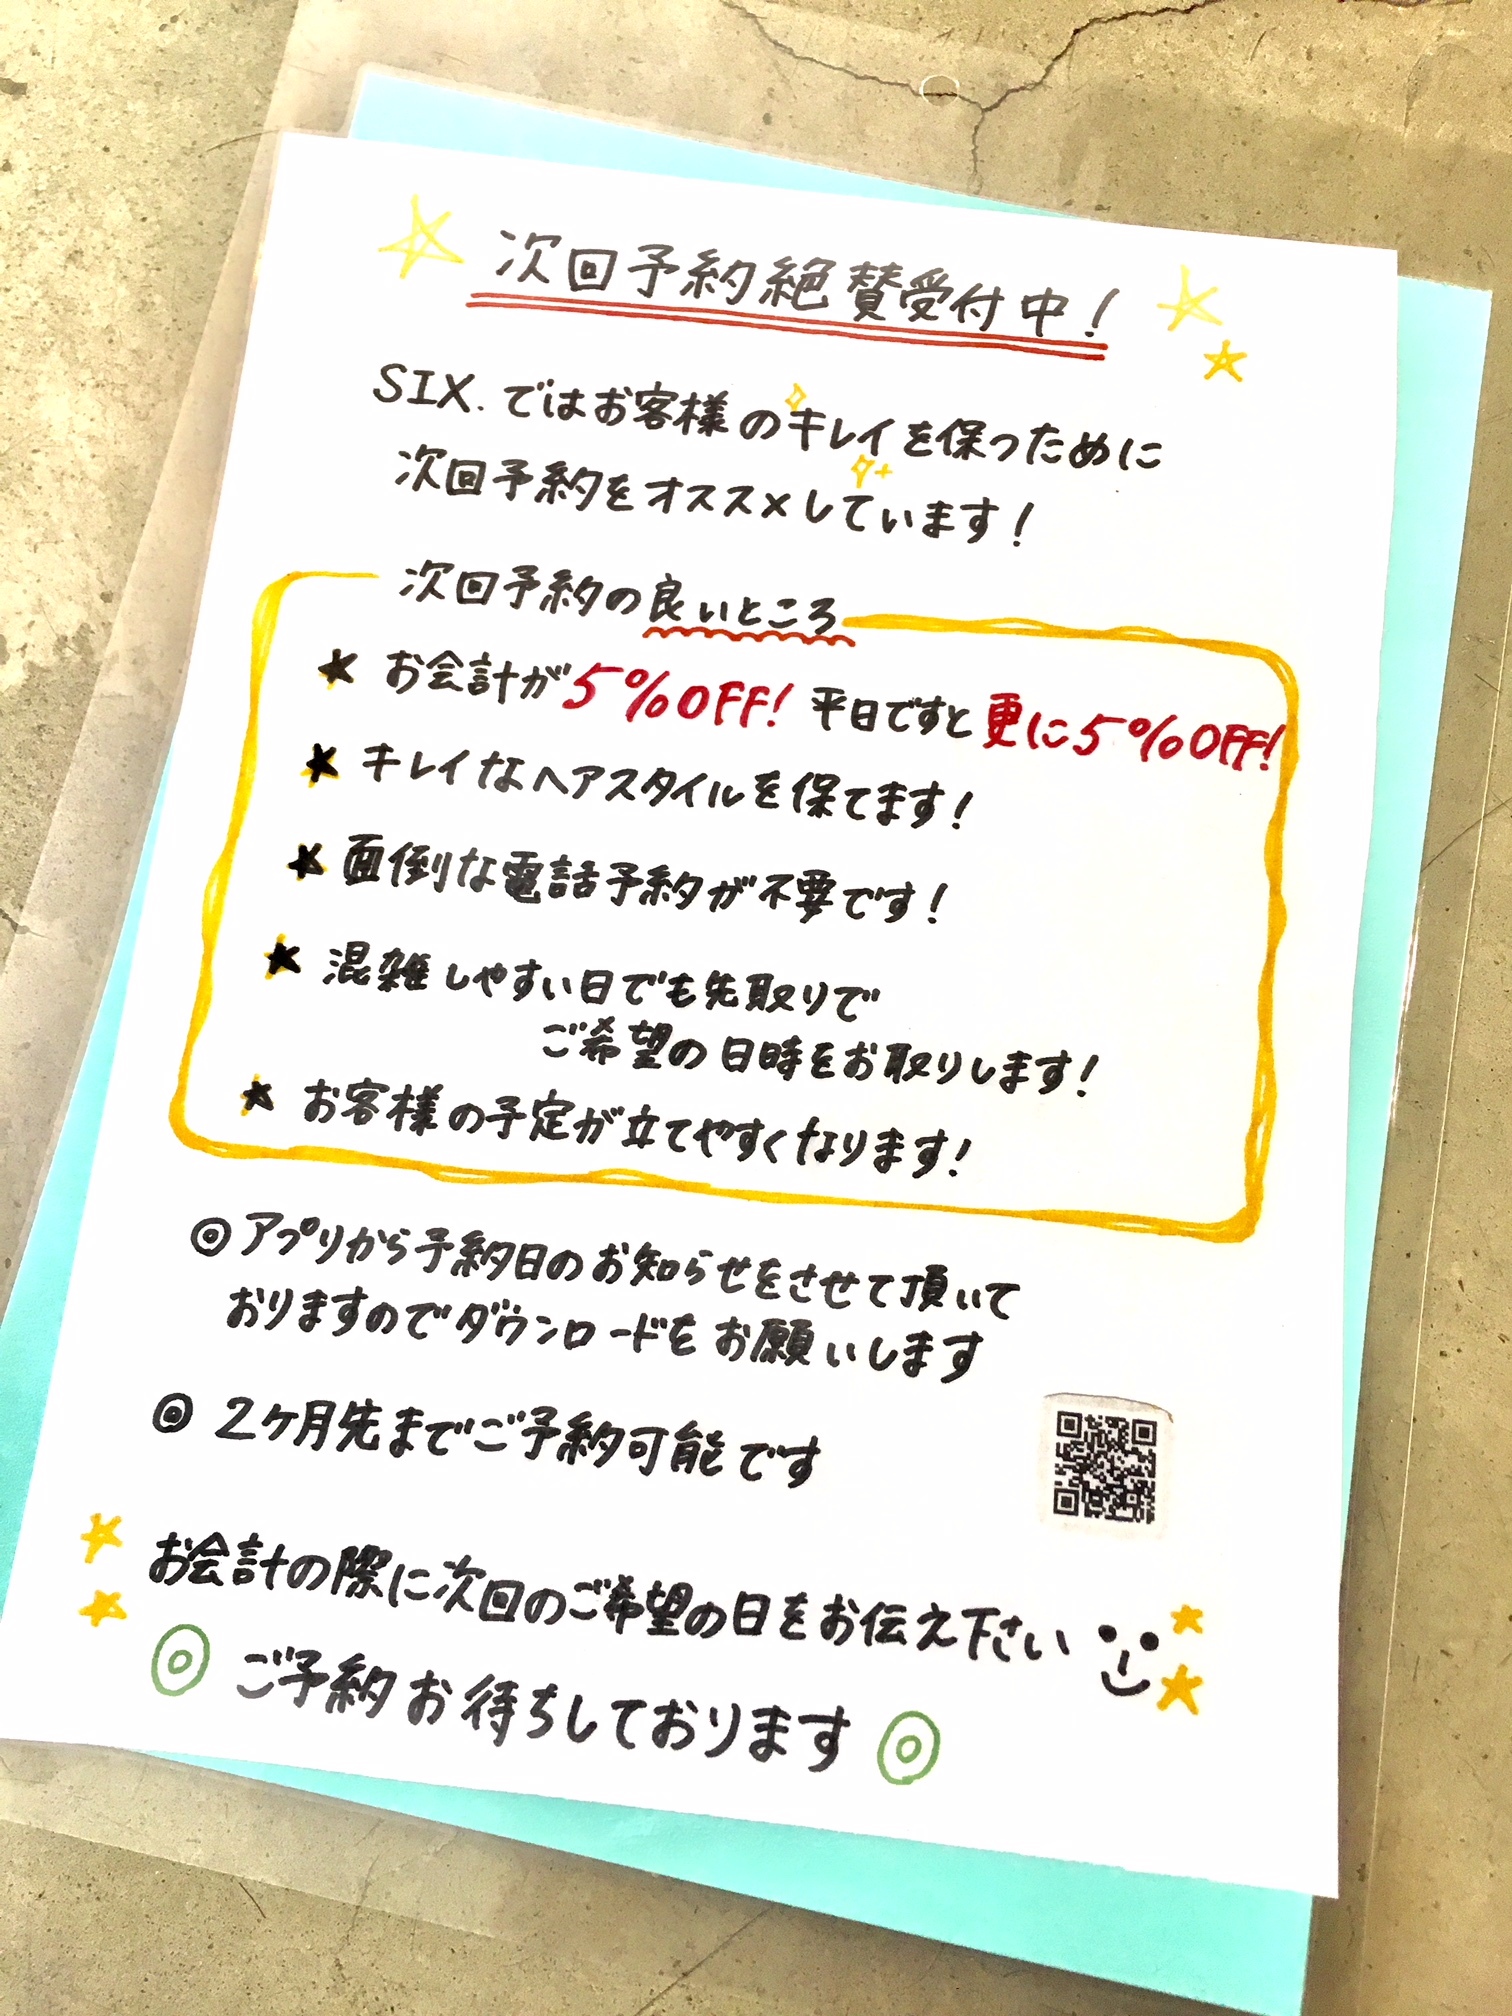 次回予約絶賛受付中！
SIX.ではお客様のキレイを保つために
次回予約をオススメしています！
次回予約の良いところ
★ お会計が5%OFF! 平日ですと更に5%OFF!
★ キレイなヘアスタイルを保てます！
★ 面倒な電話予約が不要です！
★ 混雑しやすい日でも先取りで
ご希望の日時をお取りします！
★ お客様の予定が立てやすくなります！
◎アプリから予約日のお知らせをさせて頂いて
おりますのでダウンロードをお願いします
◎ 2ヶ月先までご予約可能です
お会計の際に次回のご希望の日をお伝え下さい
◎ ご予約お待ちしております ◎